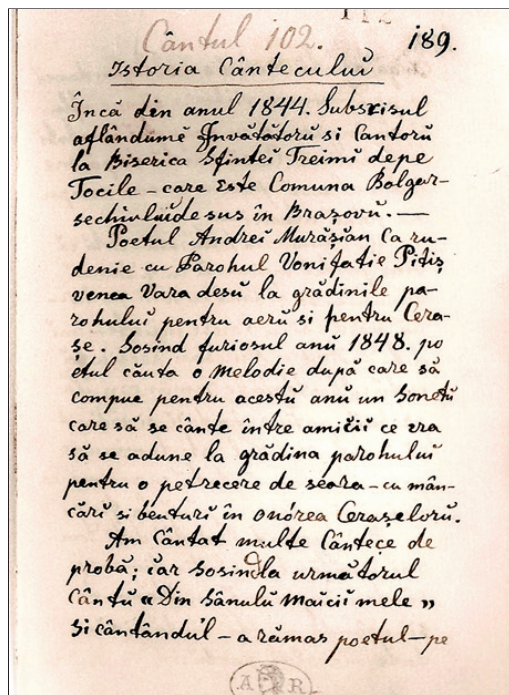 Cântul 102. 189.
Istoria Cântecului
Încă din anul 1844. Subscrisul
aflândumĕ Învatătorŭ si Cantorŭ
la Biserica Sfintei Treimi depe
Tocile – care Este Comuna Bolgar-
sechiuluide sus în Brașovŭ. —
Poetul Andreĭ Murășian Ca ru-
denie cu Parohul Vonifatie Pitiș
venea Vara desŭ la grădinile pa-
rohuluĭ pentru aerŭ si pentru Cera-
șe. Sosind furiosul anŭ 1848. po
etul căuta o Melodie după care să
compue pentru acestŭ anŭ un Sonetŭ
care să se cânte între amiciĭ ce era
să se adune la grădina parohuluĭ
pentru o petrecere de seara – cu mân-
cărĭ si beuturĭ în onórea Cerașelorŭ.
Am Cântat multe Cântece de
probă; ĭar Sosind la urmàtorul
Cântŭ „Din Sânulŭ Maiciĭ mele„
Si cântândul – a rămas poetul – pe
A R